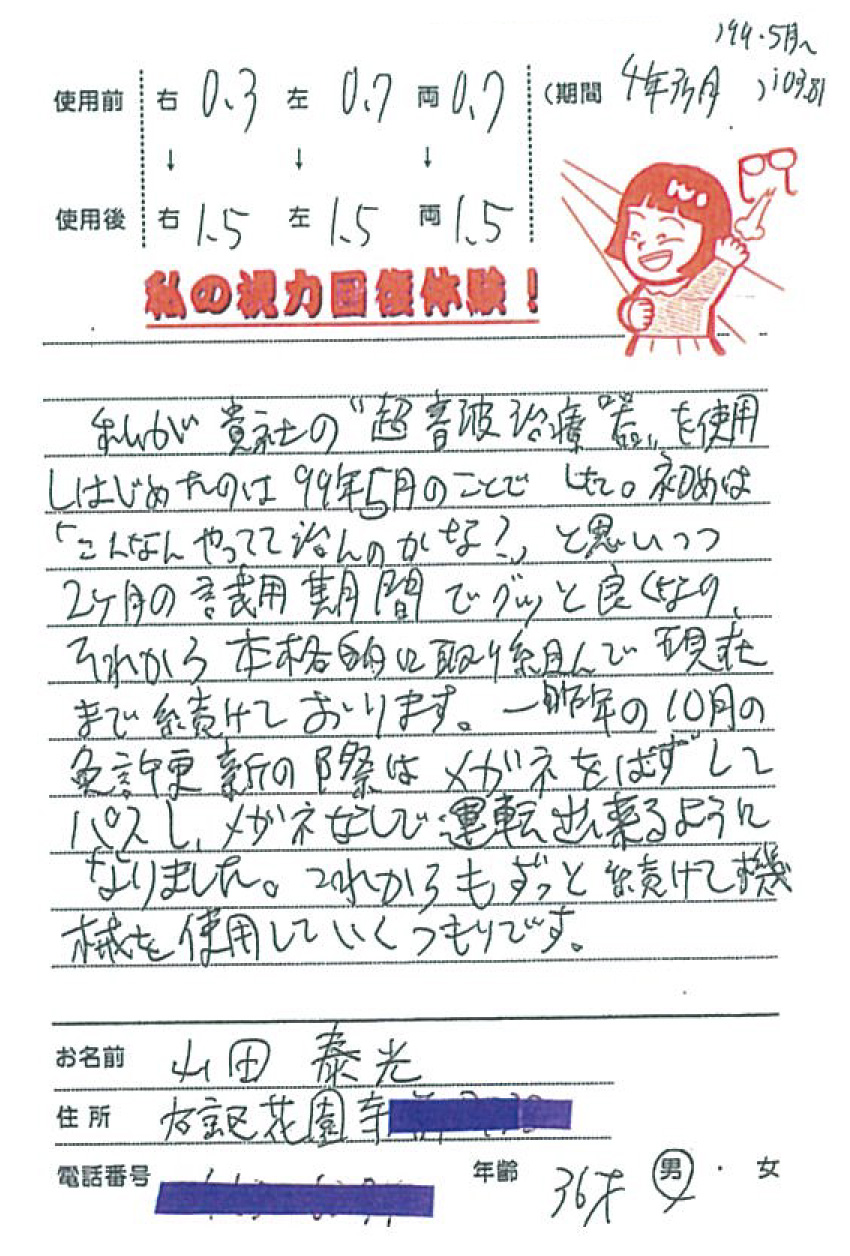 '99.5月〜
使用前 右 0.3 左 0.7 両 0.7 (期間 4年3ヶ月 ) '03.8月
↓ ↓ ↓
使用後 右 1.5 左 1.5 両 1.5
私の視力回復体験!
私が貴社の"超音波治療器"を使用
しはじめたのは99年5月のことでした。初めは
「こんなんやってて治んのかな?」と思いつつ
2ケ月の試用期間でグッと良くなり、
それから本格的に取り組んで現在
まで続けております。一昨年の10月の
免許更新の際はメガネをはずして
パスし、メガネなしで運転出来るように
なりました。これからもずっと続けて機
械を使用していくつもりです。
お名前 山田 泰光
住所 花園寺
電話番号 年齢 36才 男・女